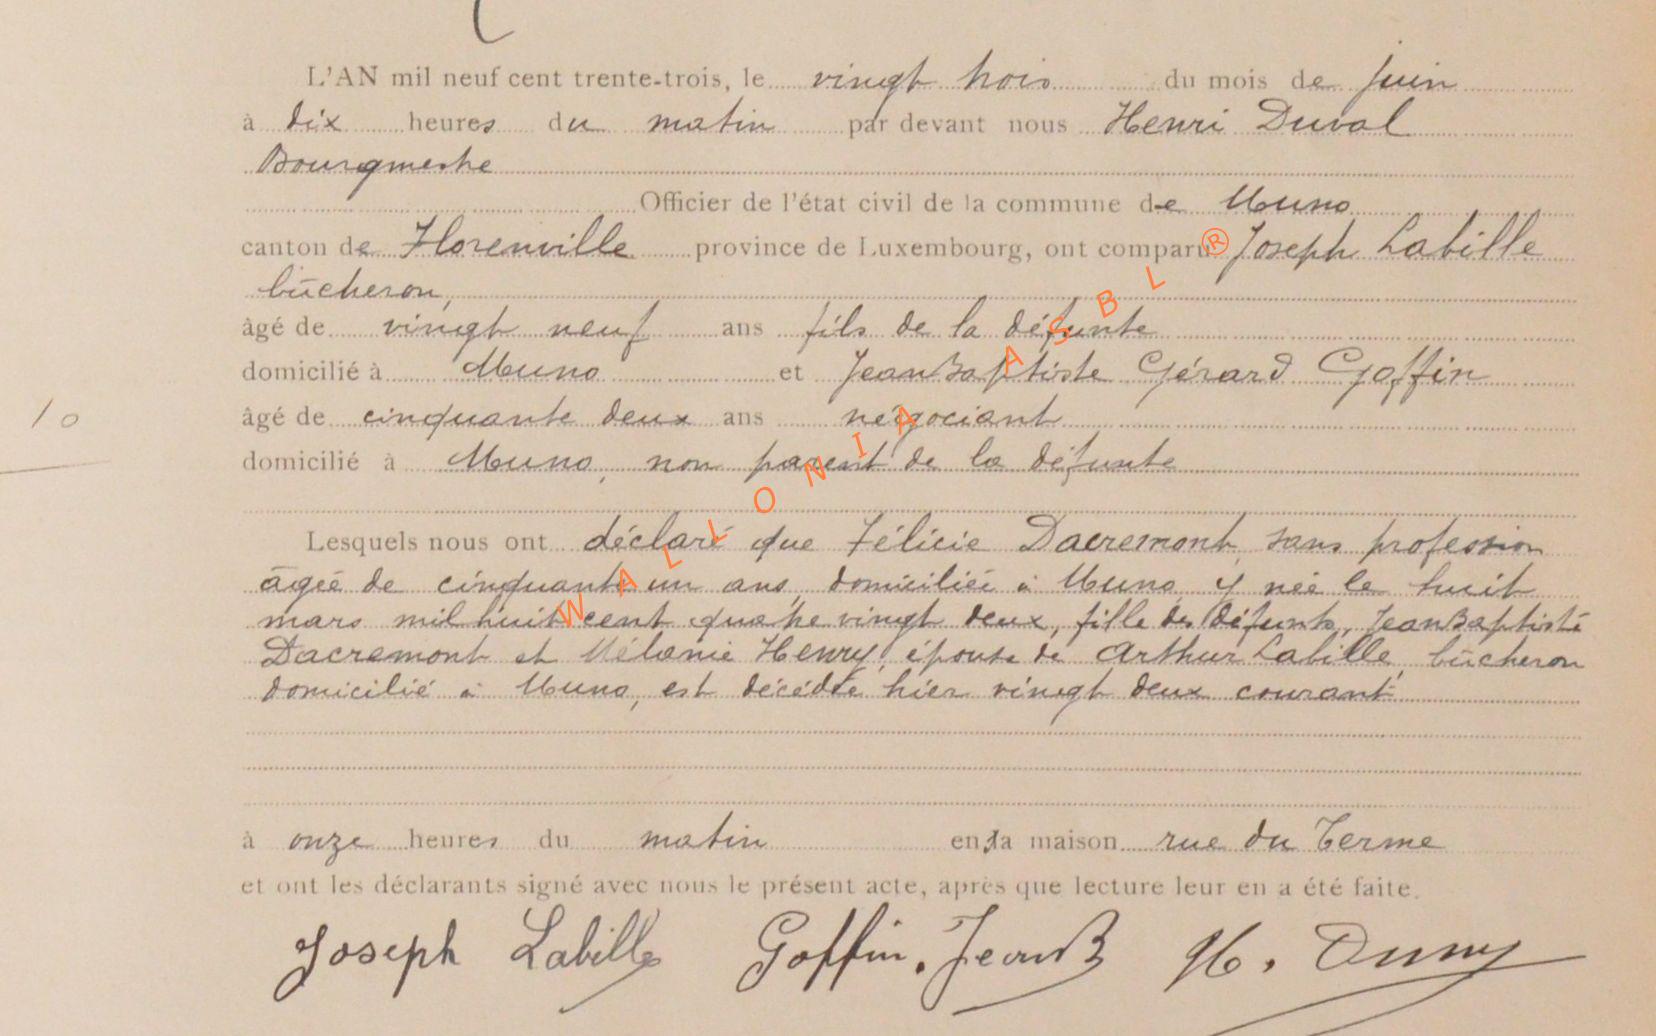 L'AN mil neuf cent trente-trois, le vingt trois du mois de juin
à dix heures du matin par devant nous Henri Duval
Bourgmestre
Officier de l'état civil de la commune de Muno
canton de Florenville province de Luxembourg, ont comparu Joseph Labille
bûcheron,
âgé de vingt neuf ans fils de la défunte
domicilié à Muno et Jean Baptiste Gérard Goffin
âgé de cinquante deux ans négociant
10
domicilié à Muno, non parent de la défunte
Lesquels nous ont déclaré que Félicie Dacremont, sans profession
âgée de cinquante un ans, domiciliée à Muno, y née le huit
mars mil huit cent quatre vingt deux, fille des défunts, Jean Baptiste
Dacremont et Mélanie Henry, épouse de Arthur Labille, bûcheron
domicilié à Muno, est décédée hier vingt deux courant
à onze heures du matin en la maison rue du Terme
et ont les déclarants signé avec nous le présent acte, après que lecture leur en a été faite.
Joseph Labille Goffin. Jean B H.
WALLONIA ASBL ®